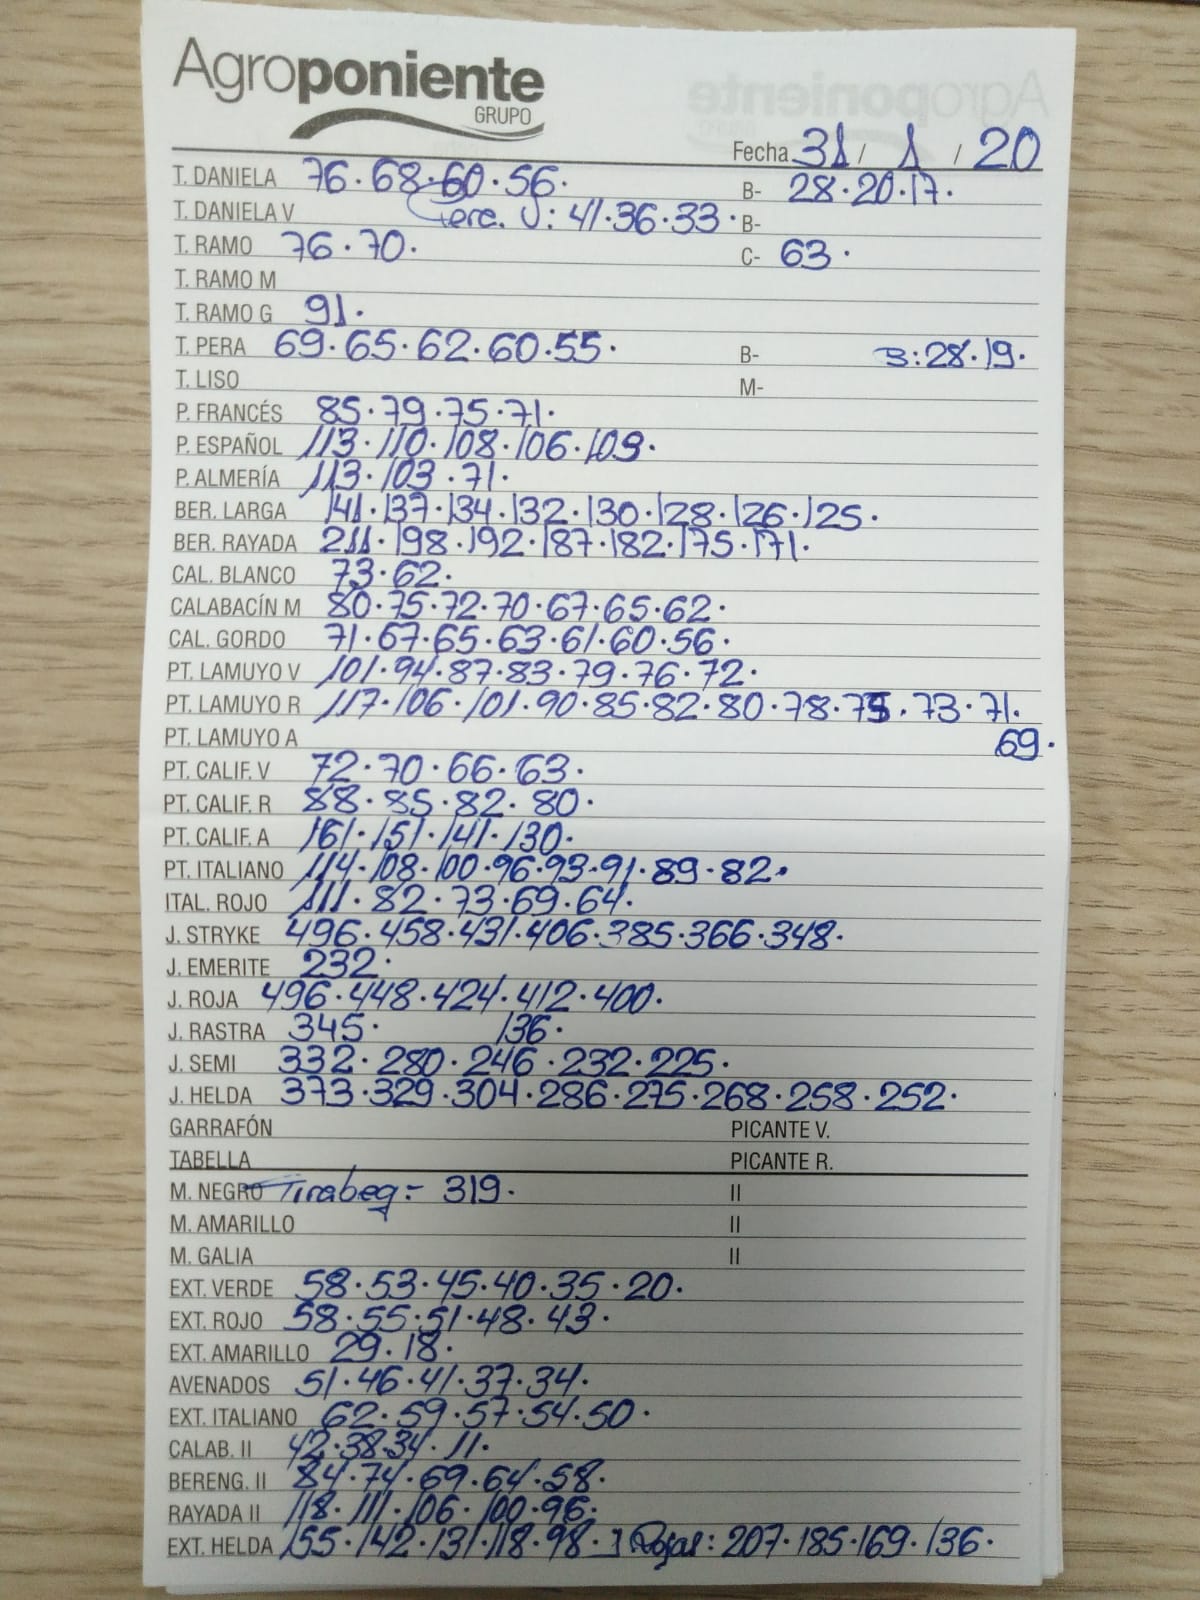 Agroponiente
GRUPO
Fecha 31 / 1 / 20
T. DANIELA 76·68·60·56· B- 28·20·17·
T. DANIELA V V: 41·36·33· B-
T. RAMO 76·70· C- 63·
T. RAMO M
T. RAMO G 91·
T. PERA 69·65·62·60·55· B- B:28·19·
T. LISO M-
P. FRANCÉS 85·79·75·71·
P. ESPAÑOL 113·110·108·106·103·
P. ALMERÍA 113·103·71·
BER. LARGA 141·137·134·132·130·128·126·125·
BER. RAYADA 211·198·192·187·182·175·171·
CAL. BLANCO 73·62·
CALABACÍN M 80·75·72·70·67·65·62·
CAL. GORDO 71·67·65·63·61·60·56·
PT. LAMUYO V 101·94·87·83·79·76·72·
PT. LAMUYO R 117·106·101·90·85·82·80·78·75·73·71·
PT. LAMUYO A 69·
PT. CALIF. V 72·70·66·63·
PT. CALIF. R 88·85·82·80·
PT. CALIF. A 161·151·141·130·
PT. ITALIANO 114·108·100·96·93·91·89·82·
ITAL. ROJO 111·82·73·69·64·
J. STRYKE 496·458·431·406·385·366·348·
J. EMERITE 232·
J. ROJA 496·448·424·412·400·
J. RASTRA 345· 136·
J. SEMI 332·280·246·232·225·
J. HELDA 373·329·304·286·275·268·258·252·
GARRAFÓN PICANTE V.
TABELLA PICANTE R.
M. NEGRO Tirabeq:- 319· II
M. AMARILLO II
M. GALIA II
EXT. VERDE 58·53·45·40·35·20·
EXT. ROJO 58·55·51·48·43·
EXT. AMARILLO 29·18·
AVENADOS 51·46·41·37·34·
EXT. ITALIANO 62·59·57·54·50·
CALAB. II 42·38·34·11·
BERENG. II 84·74·69·64·58·
RAYADA II 118·111·106·100·96·
EXT. HELDA 155·142·131·118·98·] Rojas: 207·185·169·136·